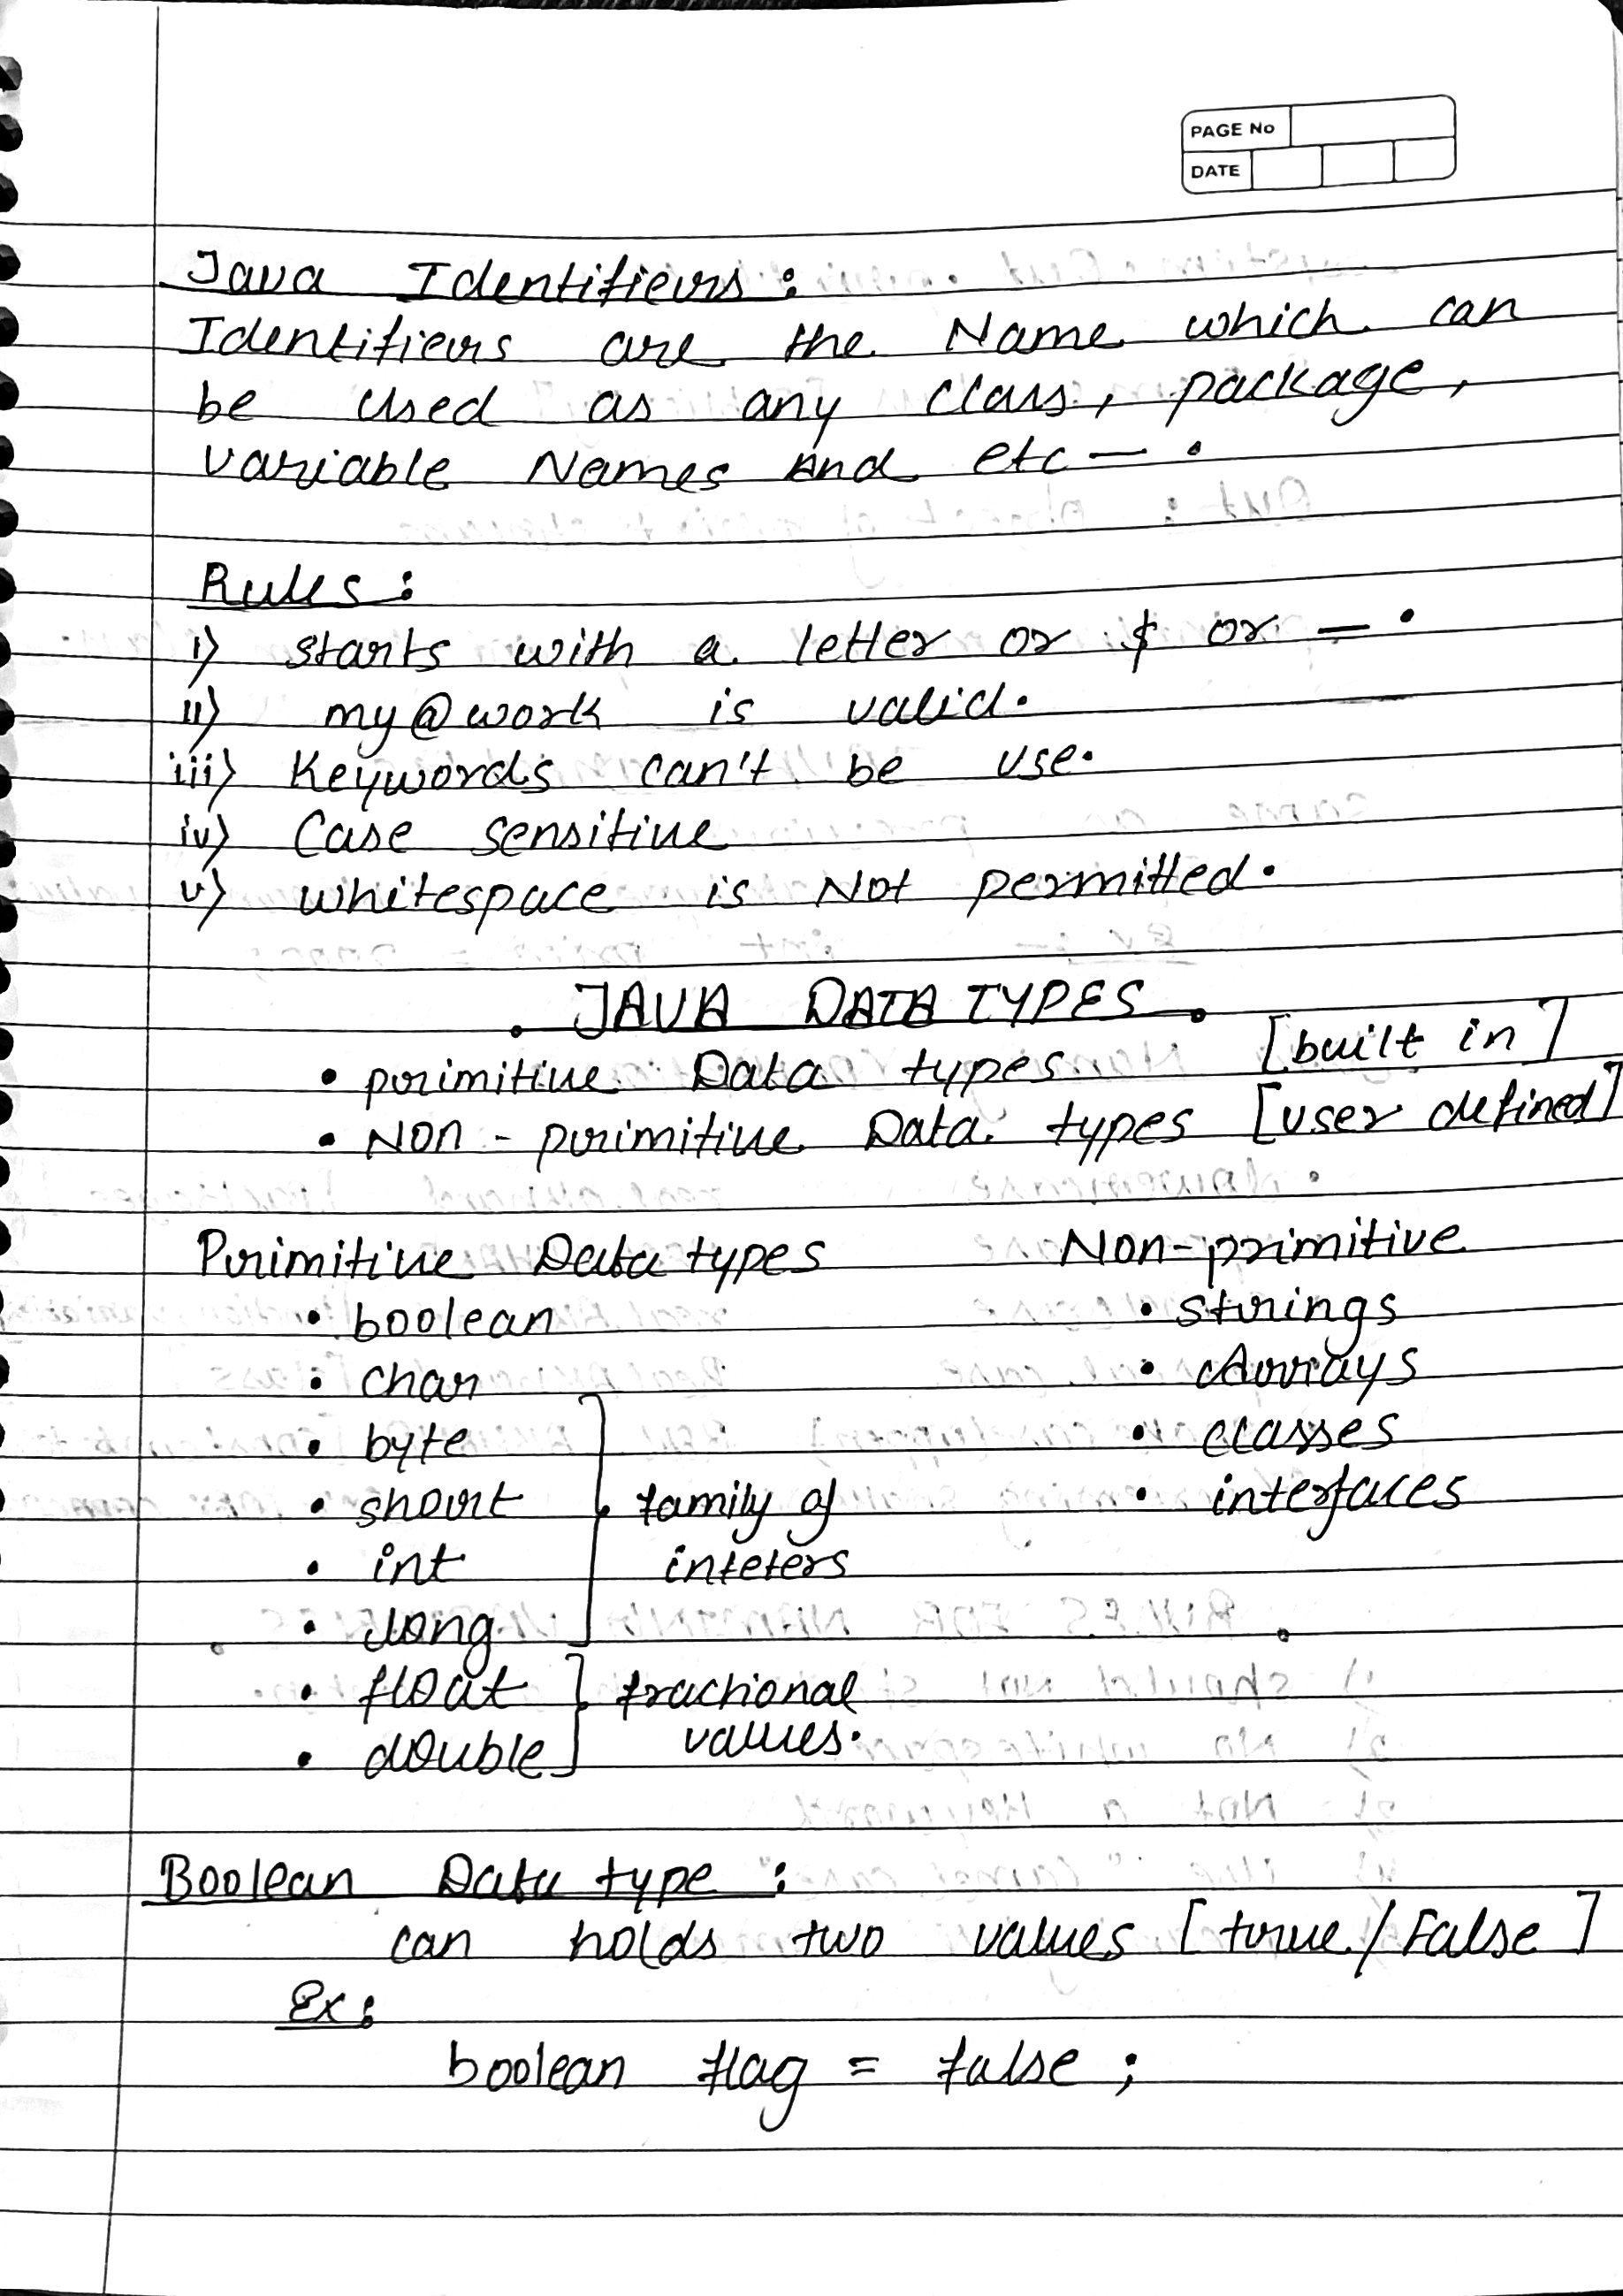 PAGE No
DATE
Java Identifiers :
Identifiers are the Name which can
be used as any class, package,
variable Names And etc — .
Rules :
i) starts with a letter or $ or — .
ii) my@work is valid.
iii) Keywords can't be use.
iv) Case sensitive
v) whitespace is Not permitted.
. JAVA DATA TYPES .
• primitive Data types [built in]
• NON - primitive Data types [user defined]
Primitive Data types Non-primitive
• boolean • strings
• char • Arrays
• byte • classes
• short family of • interfaces
• int inteters
• long
• float fractional
• double values.
Boolean Data type :
can holds two values [true/False]
Ex :
boolean flag = false ;